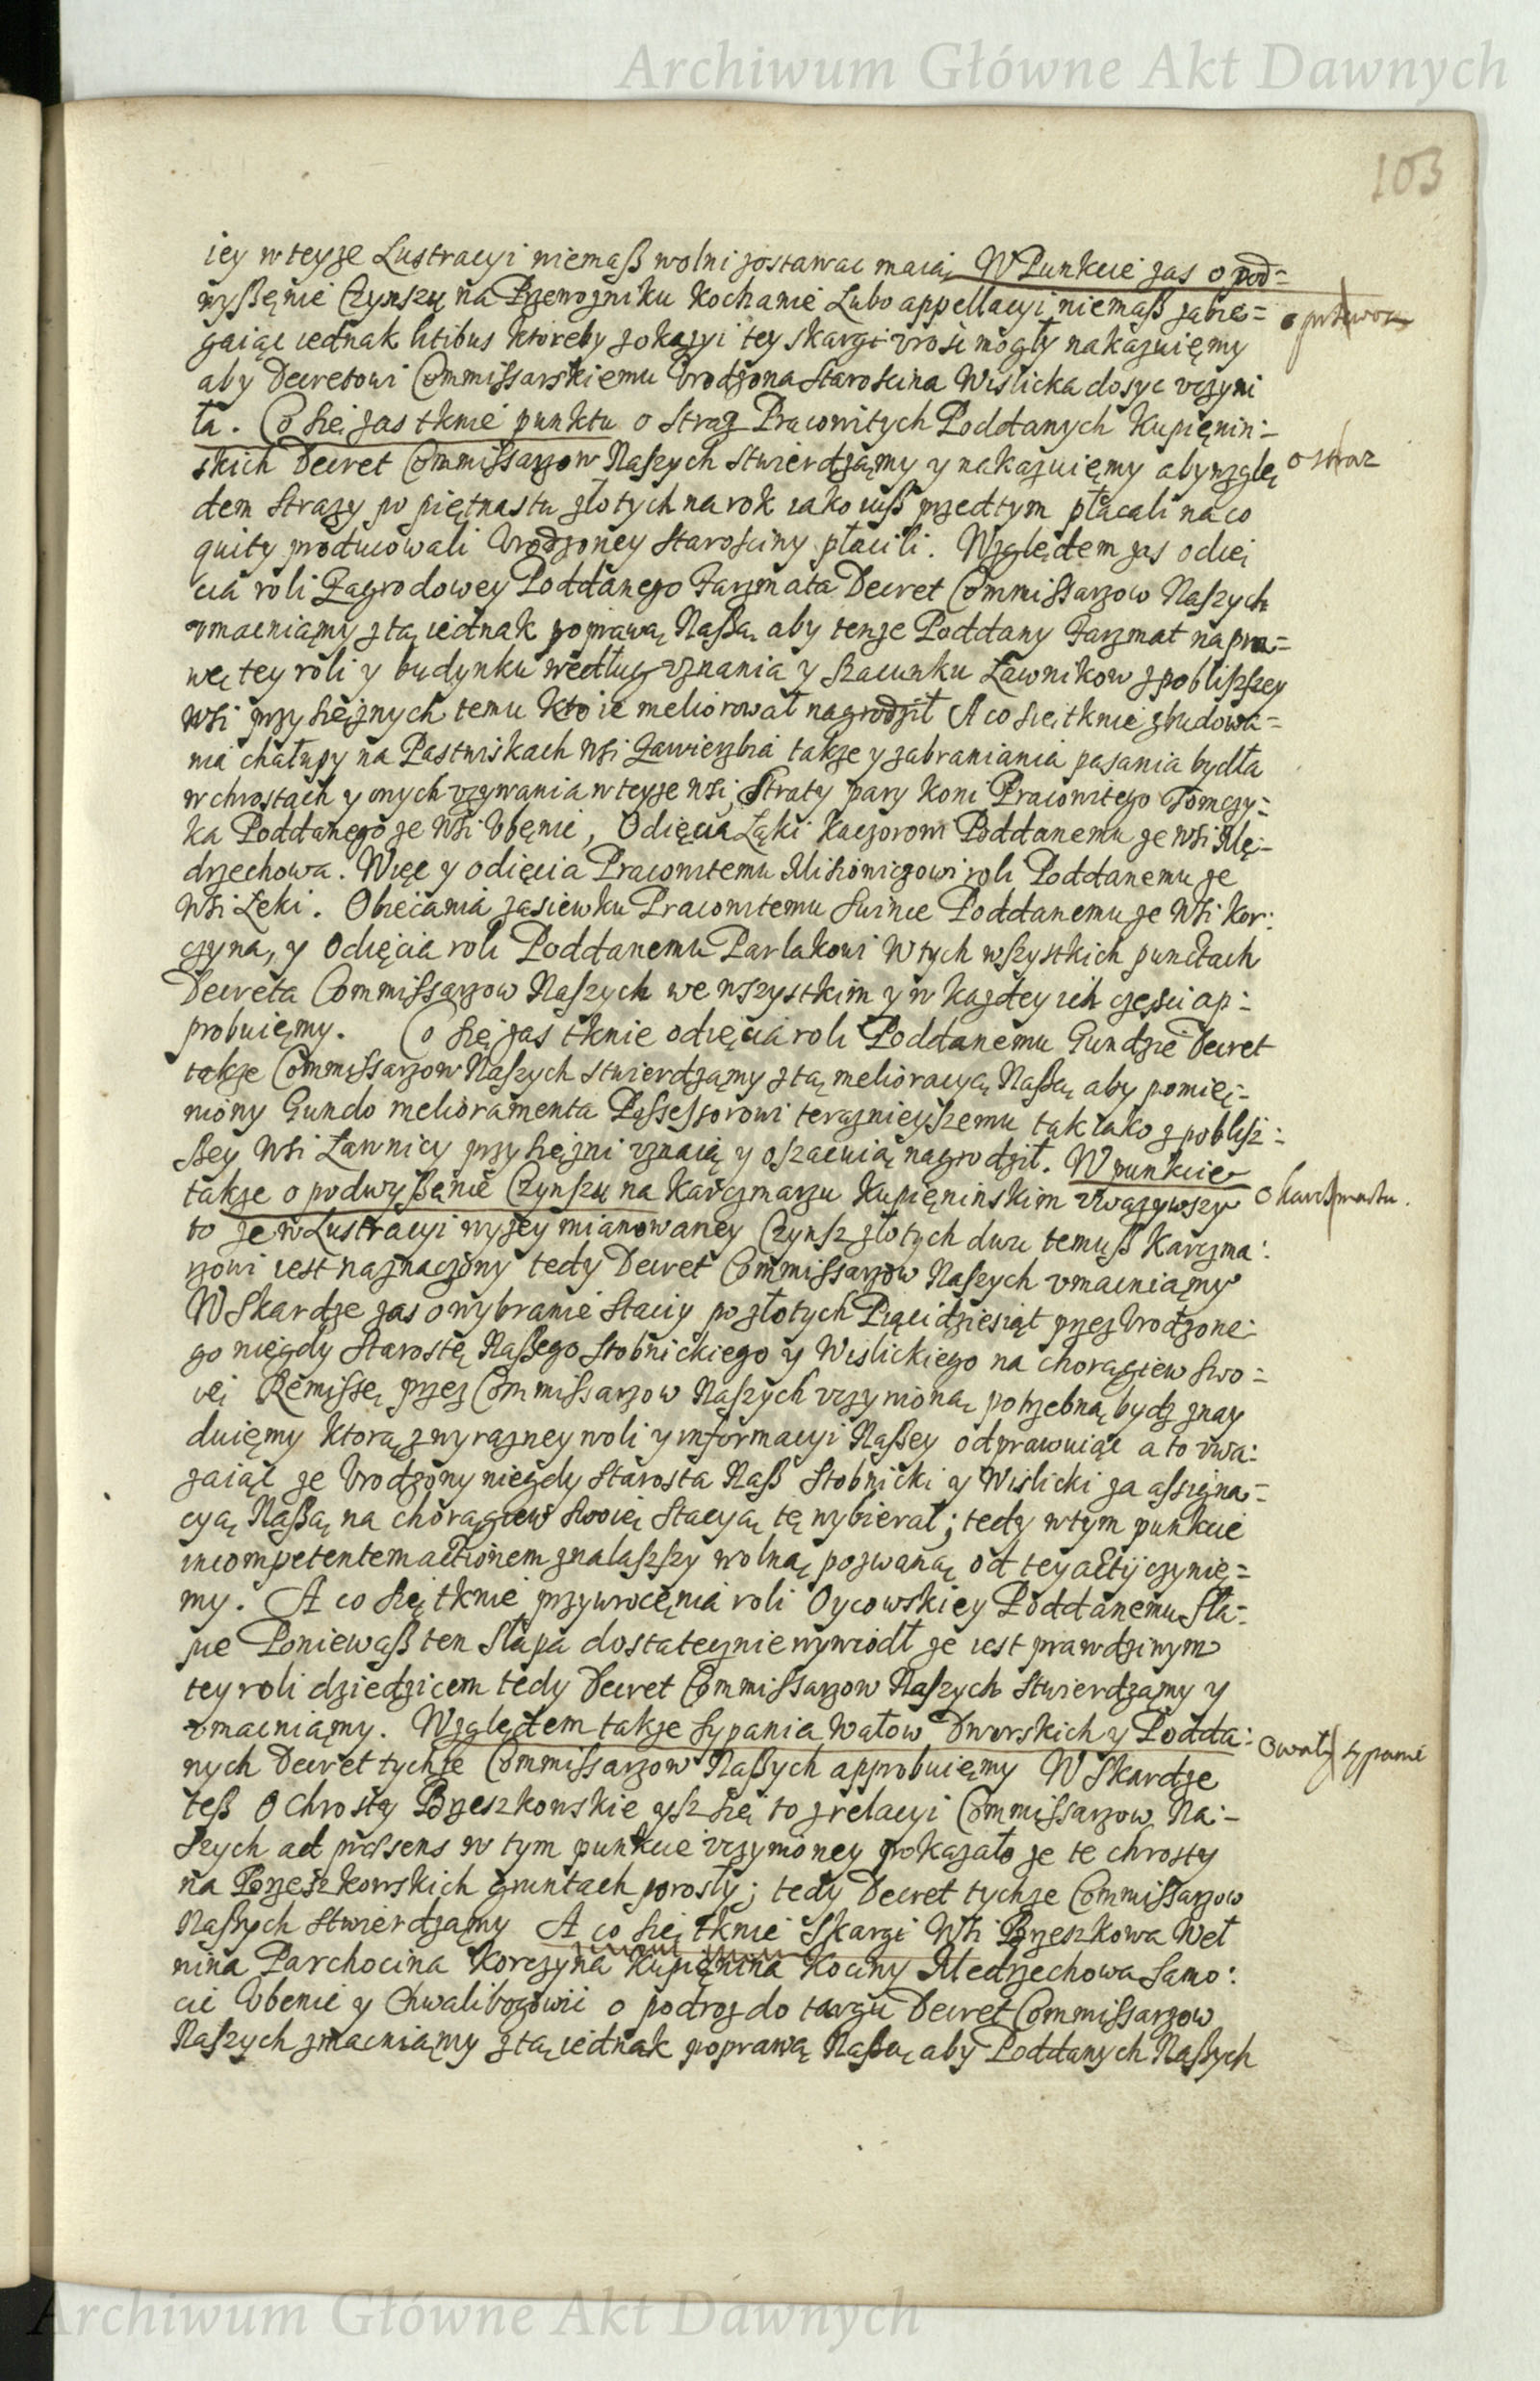 Archiwum Główne Akt Dawnych
103
iey w teyze Lustracyi niemaß wolni zostawac maią, W Punkcie zas o pod=
wyßęnie Czynszu na Przewozniku Kochanie Lubo appellacyi niemaß zabie=
gaiąc iednak litibus ktoreby z okazyi tey skargi vrość mogły nakazuięmy
aby Decretowi Commissarskiemu Vrodzona Starościna Wislicka dosyc vczyni
ła. Co się zas tknie punktu o Straz Pracowitych Poddanych Kupięnin=
skich Decret Commissarzow Naszych stwierdzamy y nakazuięmy aby wzglę
o straz
dem Strazy po piętnastu złotych na rok iako iuß przedtym płacali na co
quity producowali Vrodzoney Starościny płacili. Względem zas odię
cia roli Zagrodowey Poddanego Jarzmata Decret Commissarzow Naszych
vmacniąmy z tą iednak poprawą Naßą aby tenze Poddany Jarzmat napra=
wę tey roli y budynku według vznania y szacunku Ławnikow z pobliszszey
wsi przysięznych temu kto ie meliorował nagrodził A co się tknie zbudowa=
nia chałupy na Pastwiskach wsi Zawierzbia takze y zabraniania pasania bydła
w chrostach y onych vzywania w teyze wsi, Straty pary koni Pracowitego Tomczy=
ka Poddanego ze wsi Vbęnie, Odięcia Łąki Kaczorowi Poddanemu ze wsi Mę=
drzechowa. Więc y odięcia Pracowitemu Misiowiczowi roli Poddanemu ze
wsi Łęki. Obiecania zasiewku Pracowitemu Swince Poddanemu ze wsi Kor:
czyna, y Odięcia roli Poddanemu Parlakowi W tych wszystkich punctach
Decreta Commissarzow Naszych we wszystkim y w kazdey ich części ap=
probuięmy. Co się zas tknie odięcia roli Poddanemu Gundzie Decret
takze Commissarzow Naszych stwierdzamy z tą melioracyą Naßą aby pomię=
niony Gundo melioramenta Possessorowi teraznieyszemu tak iako z poblisz=
ßey wsi Ławnicy przysięzni vznaią y oszacuią nagrodził. W punkcie
takze o podwyßęnie Czynszu na Karczmarzu Kupięninskim vwazywszy
to ze w Lustracyi wyzey mianowaney Czynsz złotych dwu temuß Karczma:
rzowi iest naznaczony tedy Decret Commissarzow Naszych vmacniąmy
W Skardze zas o wybranie Staciy po złotych Pięcidziesiąt przez Vrodzone=
go niegdy Starostę Naßego Stobnickiego y Wislickiego na chorągiew swo=
ię Remissę przez Commissarzow Naszych vczynioną potrzebną bydz znay
duięmy ktorą z wyrazney woli y informacyi Naßey odprawuiąc a to vwa:
zaiąc ze Vrodzony niegdy Starosta Naß Stobnicki y Wislicki za assigna=
cyą Naßą na chorągiew swoię Stacyą tę wybierał; tedy w tym punkcie
incompetentem actionem znalazszy wolną pozwaną od tey actij czynię=
my. A co się tknie przywrocęnia roli Oycowskiey Poddanemu Sła=
pie Poniewaß ten Słapa dostatecznie wywiodł ze iest prawdziwym
tey roli dziedzicem tedy Decret Commissarzow Naszych stwierdzamy y
vmacniąmy. Względem takze sypania Wałow Dworskich y Podda=
nych Decret tychze Commissarzow Naßych approbuięmy W Skardze
teß O chrosty Brzeszkowskie ysz się to z relacyi Commissarzow Na=
szych ad præsens w tym punkcie vczynioney pokazało ze te chrosty
na Brzeszkowskich gruntach porosły; tedy Decret tychze Commissarzow
Naszych stwierdzamy A co się tknie Skargi Wsi Brzeszkowa Weł
nina Parchocina Korczyna Kupięnina Kociny Mędrzechowa Samo:
cic Vbenie y Chwalibogowic o podroz do targu Decret Commissarzow
Naszych zmacniąmy z tą iednak poprawą Naßą aby Poddanych Naßych
Archiwum Główne Akt Dawnych